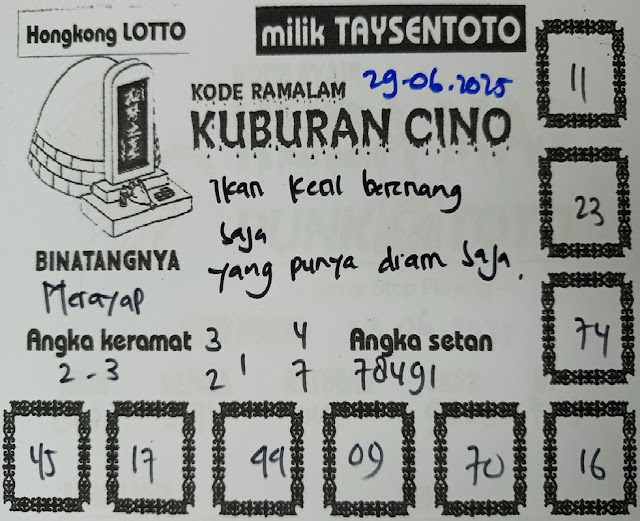 Hongkong LOTTO
milik TAYSENTOTO
11
KODE RAMALAM 29-06.2025
KUBURAN CINO
Ikan Kecil berenang
saja
yang punya diam saja.
23
BINATANGNYA
Merayap
74
Angka keramat 3 4 Angka setan
2-3 2 1 7 78491
45 17 99 09 70 16